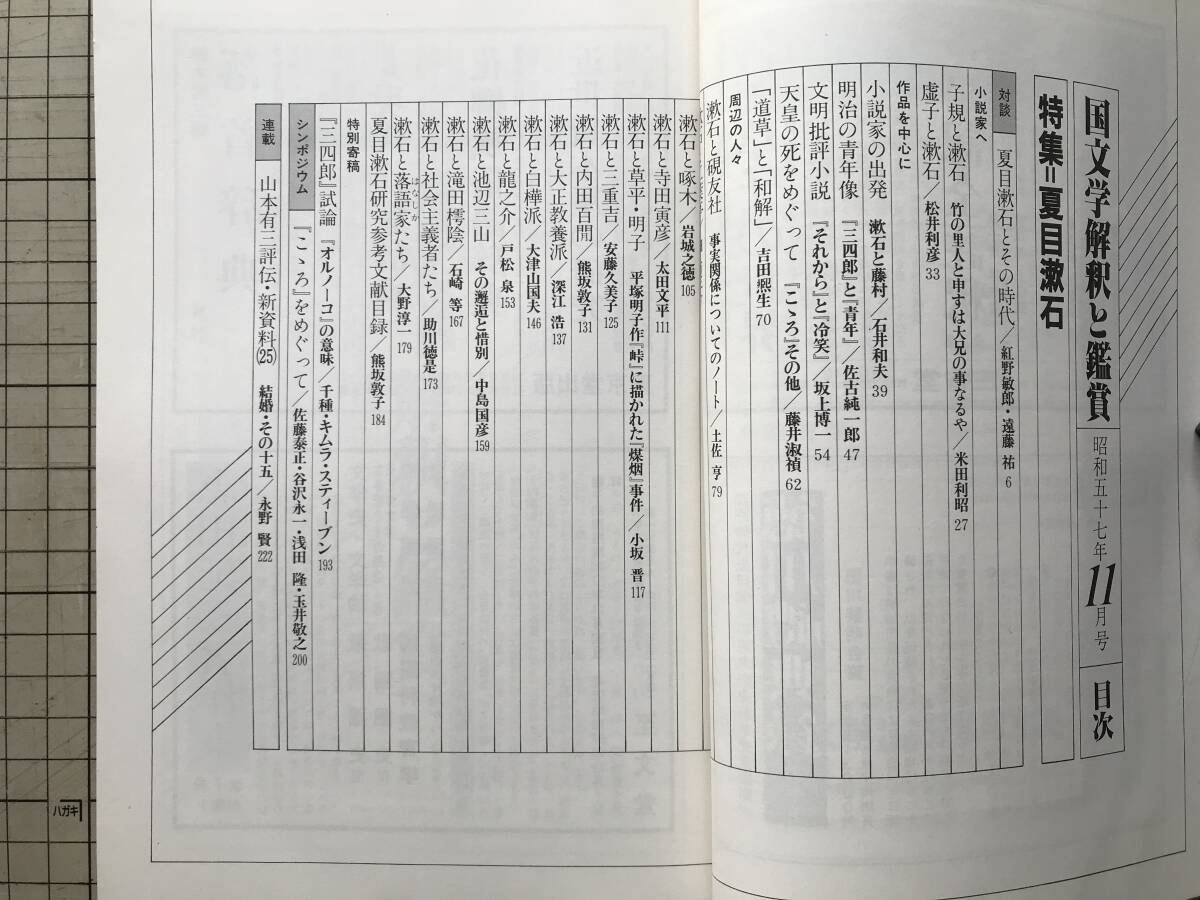 国文学解釈と鑑賞 昭和五十七年11月号 目次
特集=夏目漱石
対談 夏目漱石とその時代/紅野敏郎・遠藤 祐 6
小説家へ
子規と漱石 竹の里人と申すは大兄の事なるや/米田利昭 27
虚子と漱石/松井利彦 33
作品を中心に
小説家の出発 漱石と藤村/石井和夫 39
明治の青年像 『三四郎』と『青年』/佐古純一郎 47
文明批評小説 『それから』と『冷笑』/坂上博一 54
天皇の死をめぐって 『こゝろ』その他/藤井淑禎 62
「道草」と「和解」/吉田凞生 70
周辺の人々
漱石と硯友社 事実関係についてのノート/土佐 亨 79
漱石と啄木/岩城之徳 105
漱石と寺田寅彦/太田文平 111
漱石と草平・明子 平塚明子作『峠』に描かれた『煤烟』事件/小坂 晋 117
漱石と三重吉/安藤久美子 125
漱石と内田百閒/熊坂敦子 131
漱石と大正教養派/深江 浩 137
漱石と白樺派/大津山国夫 146
漱石と龍之介/戸松 泉 153
漱石と池辺三山 その邂逅と惜別/中島国彦 159
漱石と滝田樗陰/石崎 等 167
漱石と社会主義者たち/助川徳是 173
漱石と落語家たち/大野淳一 179
はなしか
夏目漱石研究参考文献目録/熊坂敦子 184
特別寄稿
『三四郎』試論 『オルノーコ』の意味/千種・キムラ・スティーブン 193
シンポジウム 『こゝろ』をめぐって/佐藤泰正・谷沢永一・浅田 隆・玉井敬之 200
連載 山本有三評伝・新資料(25) 結婚・その十五/永野 賢 222
ハガキ